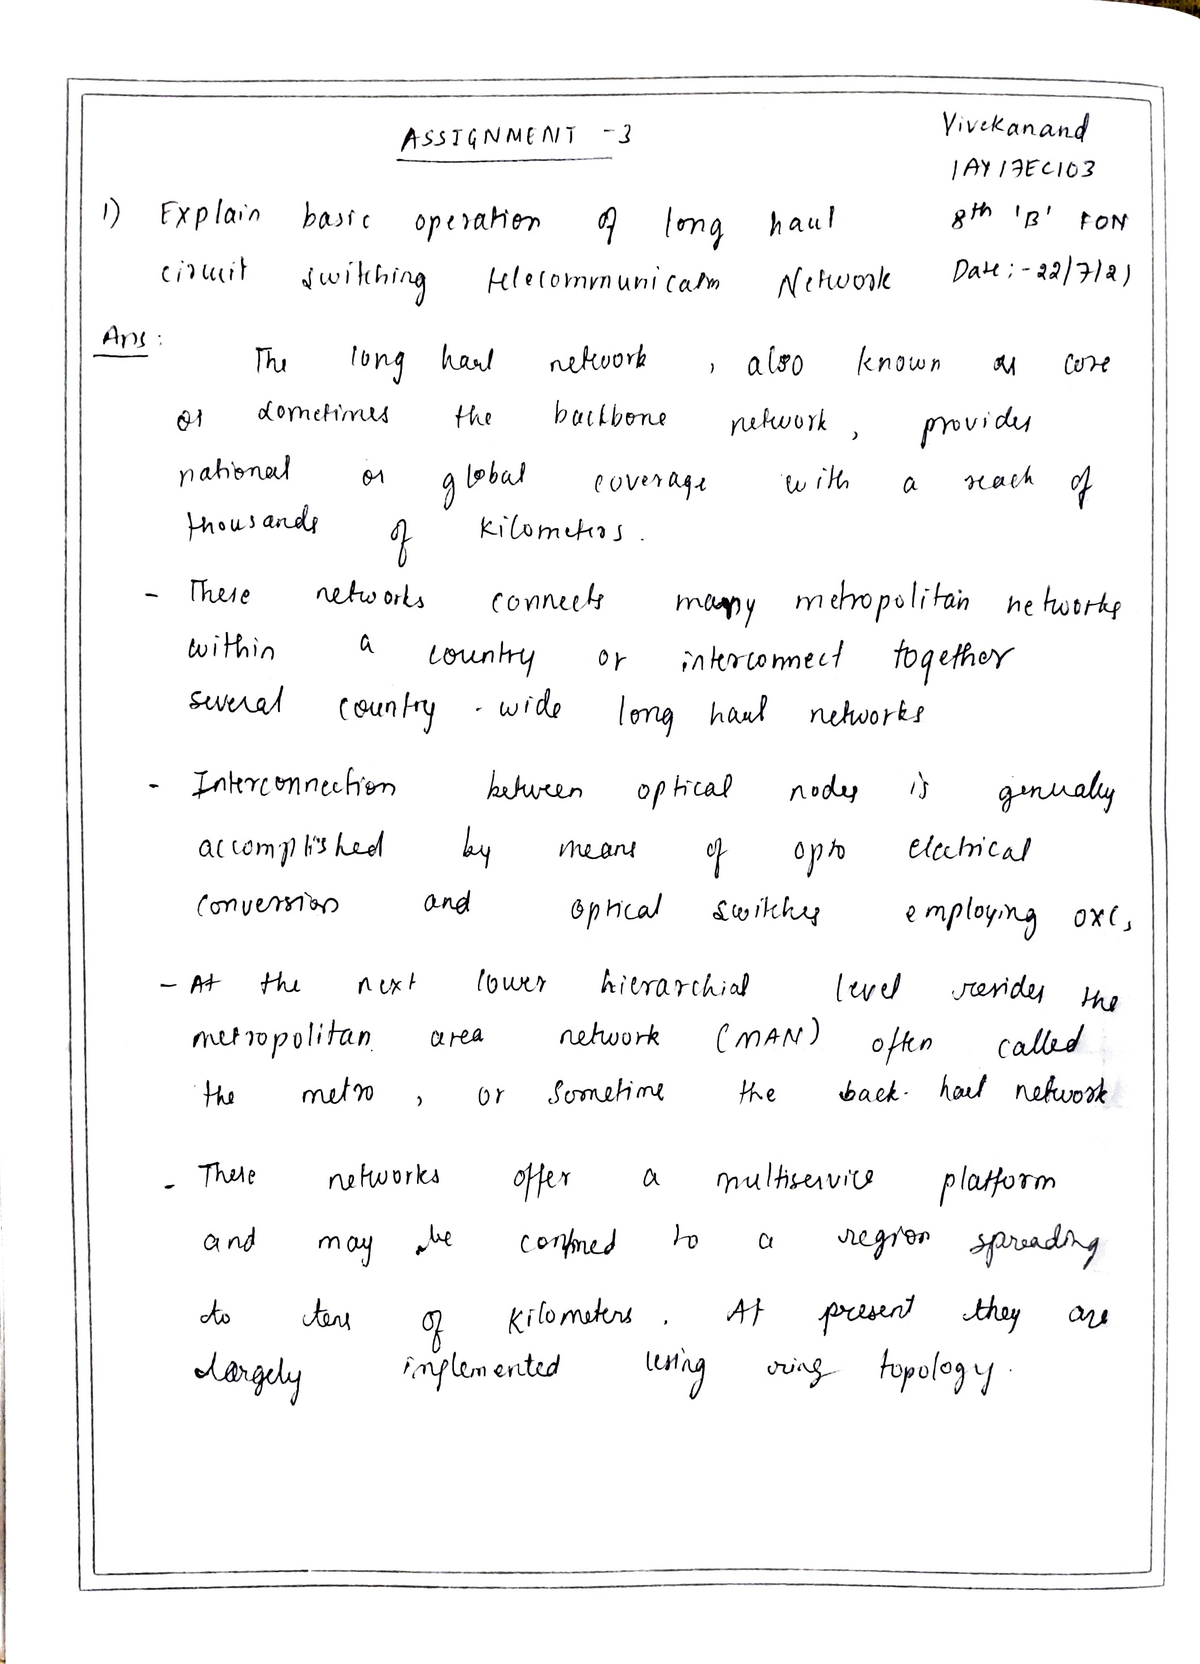 ASSIGNMENT - 3
Vivekanand
1AY17EC103
8th 'B' FON
Date :- 22/7/21
1) Explain basic operation of long haul
circuit switching telecommunicatn Network
Ans :
The long haul network , also known as core
or sometimes the backbone network , provides
national or global coverage with a reach of
thousands of kilometers .
- These networks connects many metropolitan networks
within a country or interconnect together
several country - wide long haul networks
- Interconnection between optical nodes is generally
accomplished by means of opto electrical
conversion and optical switches employing OXC,
- At the next lower hierarchial level resides the
metropolitan area network (MAN) often called
the metro , or sometime the back - haul network
- These networks offer a multiservice platform
and may be confined to a region spreading
to tens of kilometers . At present they are
largely implemented using ring topology .